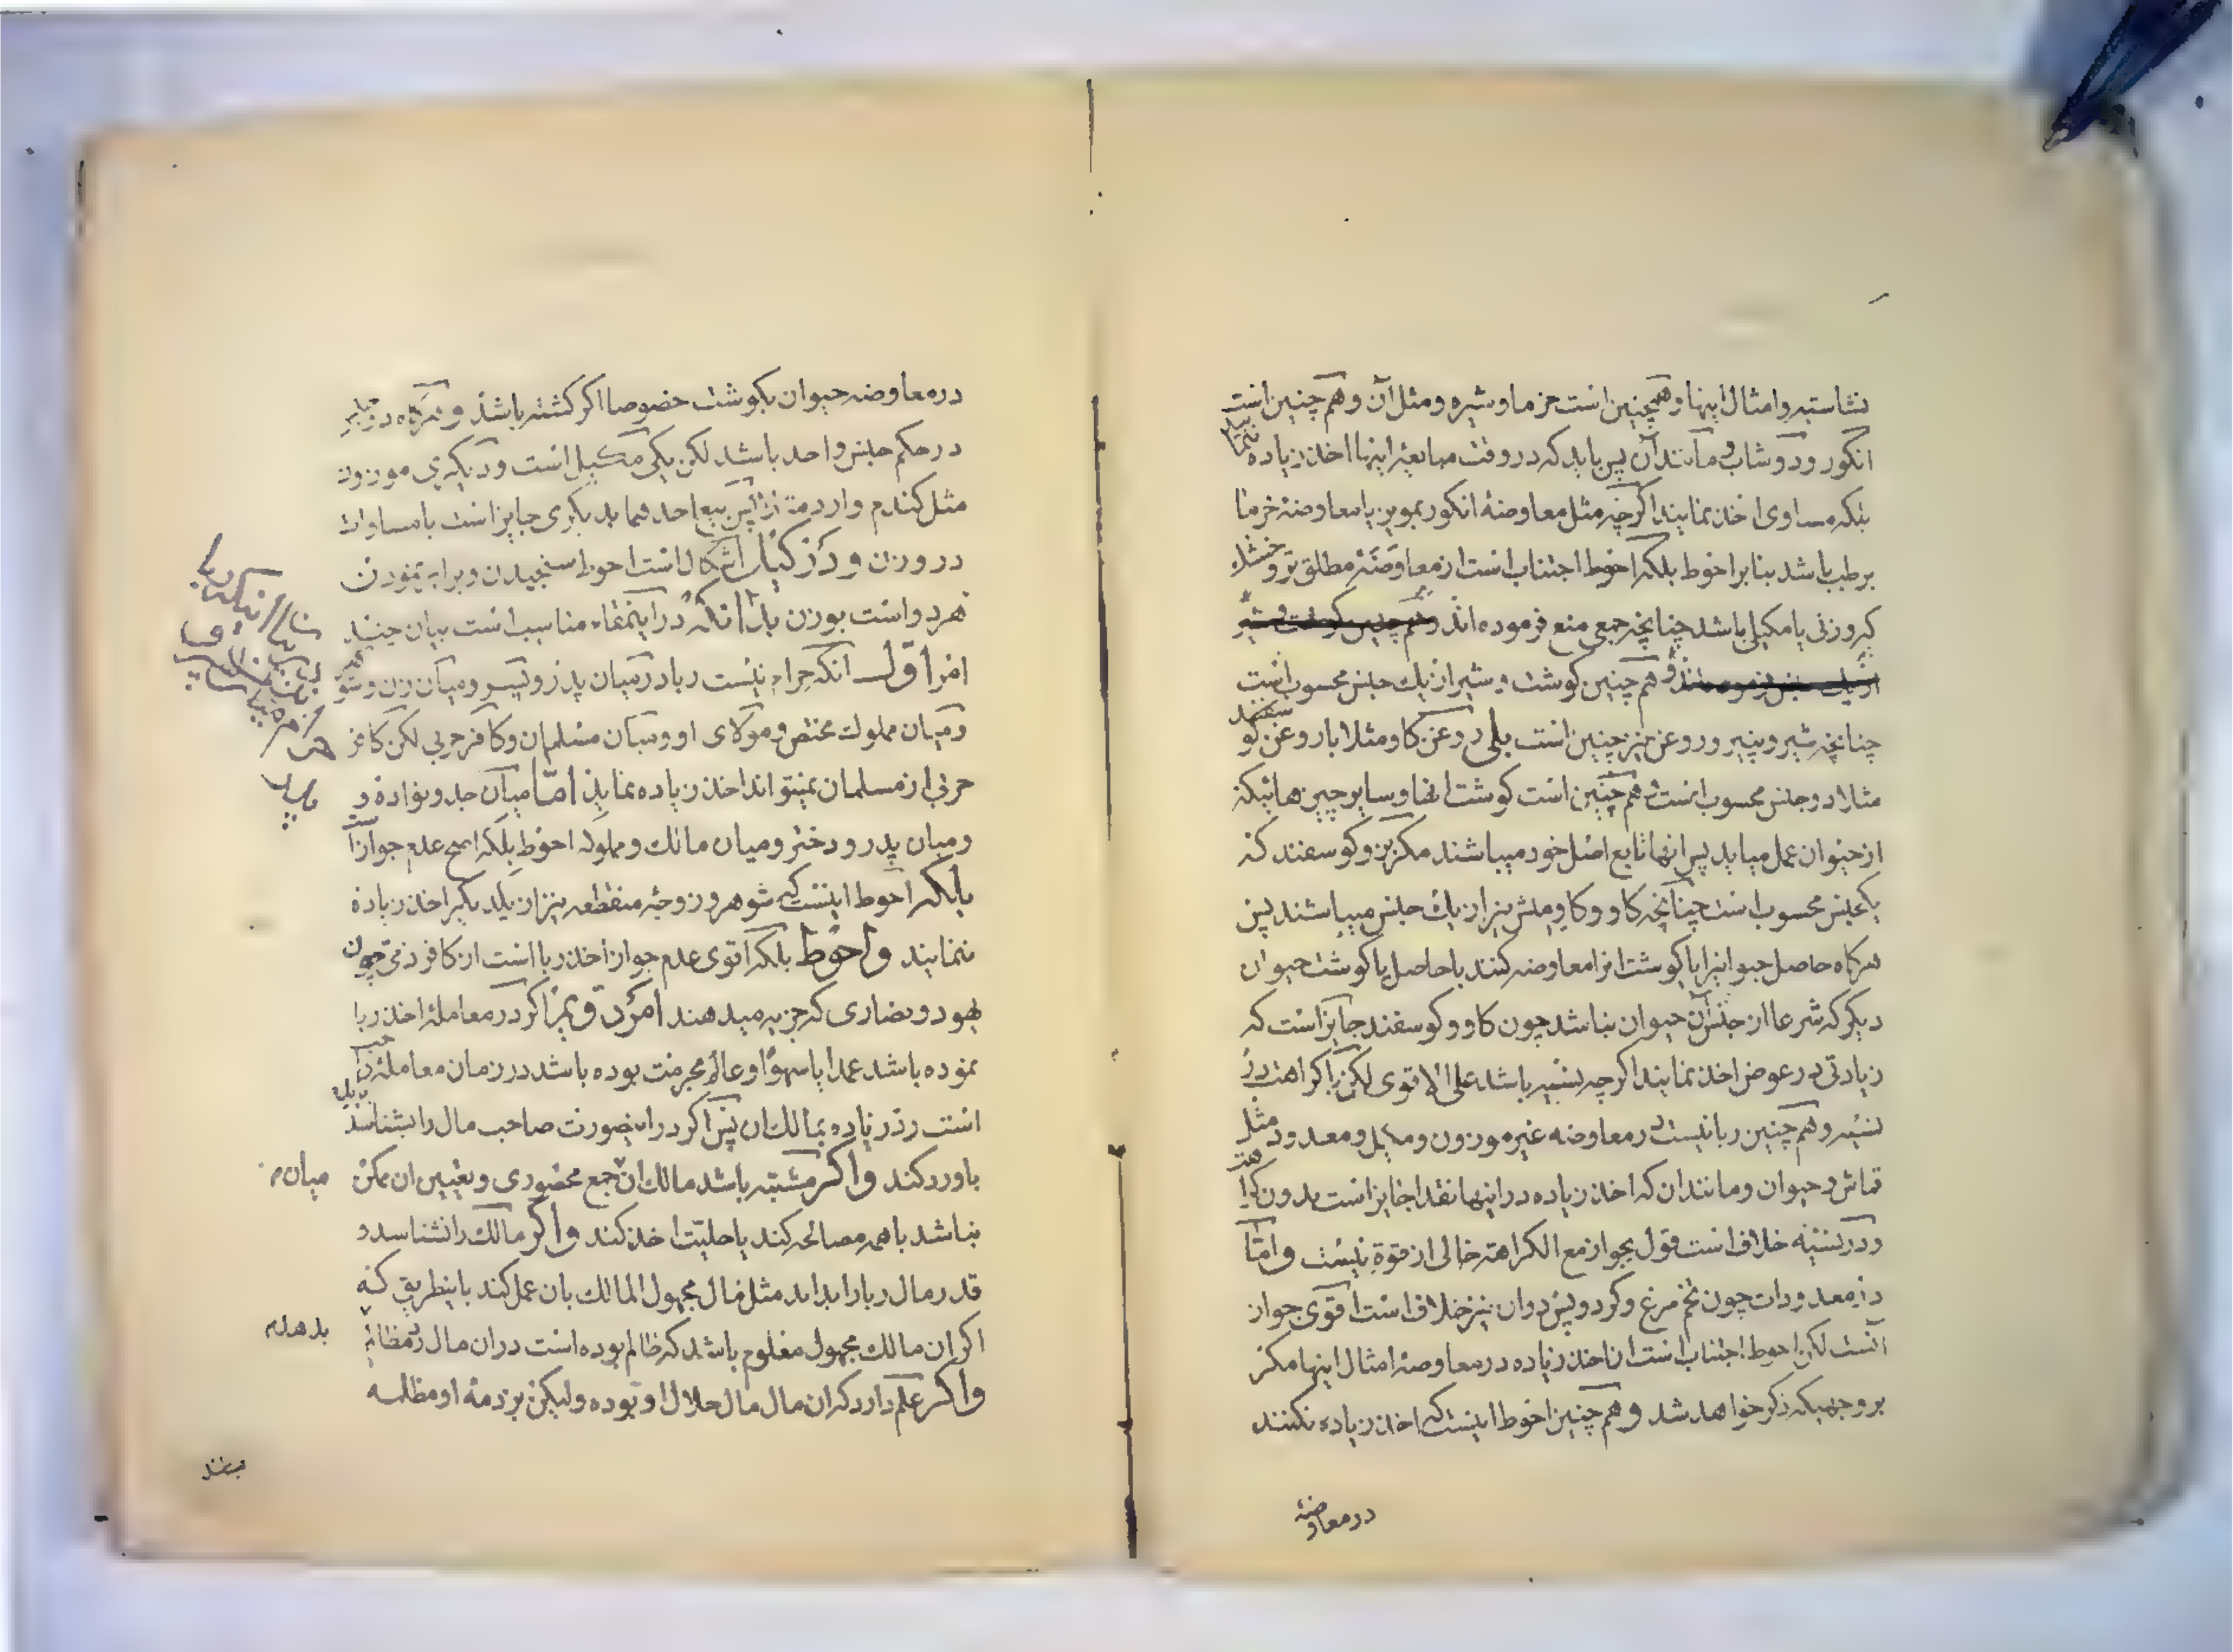 نشاسته وامثال اینها وهمچنین است خرما وشیره ومثل آن وهم چنین است
انگور ودوشاب ومانند آن پس باید که در وقت مبایعهٔ اینها اخذ زیاده ننمایند
بلکه مساوی اخذ نمایند اگرچه مثل معاوضهٔ انگور بمویز یا معاوضهٔ خرما
برطب باشد بنابر احوط بلکه احوط اجتناب است از معاوضهٔ مطلق تر وخشک
که وزنی یا مکیلی باشد چنانچه جمعی منع فرموده‌اند
وهم چنین گوشت وشیر از یک جنس محسوب است
چنانچه شیر وپنیر وروغن نیز چنین است بلی روغن گاو مثلا با روغن گوسفند
مثلا دو جنس محسوب است وهم چنین است گوشت آنها وسایر چیزهائیکه
از حیوان بعمل میاید پس آنها تابع اصل خود میباشند مگر بز وگوسفند که
یکجنس محسوب است چنانچه گاو وگاومیش نیز از یک جنس میباشند پس
هرگاه حاصل حیوانیرا با گوشت انرا معاوضه کنند با حاصل یا گوشت حیوان
دیگر که شرعا از جنس آن حیوان نباشد چون گاو وگوسفند جایز است که
زیادتی در عوض اخذ نمایند اگرچه نسیه باشد علی الاقوی لکن با کراهت در
نسیه وهم چنین ربا نیست در معاوضه غیر موزون ومکیل ومعدود مثل
قماش وحیوان ومانند ان که اخذ زیاده در اینها نقدا جایز است بدون کراهت
ودر نسیه خلاف است قول بجواز مع الکراهة خالی از قوة نیست واما
در معدودات چون تخم مرغ وگردو پس در ان نیز خلاف است اقوی جواز
است لکن احوط اجتناب است از اخذ زیاده در معاوضهٔ امثال اینها مگر
بر وجهیکه ذکر خواهد شد وهم چنین احوط اینست که اخذ زیاده نکنند
در معاوضهٔ
در معاوضه حیوان بگوشت خصوصا اگر کشته باشد
در حکم جنس واحد باشد لکن یکی مکیل است ودیگری موزون
مثل گندم وارد پس بیع احدهما بدیگری جایز است با مساوات
در وزن ودر کیل اشکال است احوط سنجیدن وبرابر نمودن
هر دو است بوزن بدانکه در اینمقام مناسب است بیان چند
امر اول انکه حرام نیست ربا در میان پدر وپسر ومیان زن وشوهر
ومیان مملوک مختص ومولای او ومیان مسلمان وکافر حربی لکن کافر
حربی از مسلمان نمیتواند اخذ زیاده نماید اما میان جد ونواده و
ومیان پدر ودختر ومیان مالک ومملوکه احوط بلکه اصح عدم جواز است
بلکه احوط اینست که شوهر وزوجهٔ منقطعه نیز از یکدیگر اخذ زیاده
ننمایند واحوط بلکه اقوی عدم جواز اخذ ربا است از کافر ذمی چون
یهود ونصاری که جزیه میدهند امر دویم اگر در معاملهٔ اخذ ربا
نموده باشد عمدا یا سهوا وعالم بحرمت بوده باشد در زمان معامله
است رد زیاده بمالک ان پس اگر در اینصورت صاحب مال را بشناسد باید
باو رد کند واگر مشتبه باشد مالک ان جمع محصوری وتعیین ان ممکن
میان
نباشد با همه مصالحه کند یا حلیت اخذ کند واگر مالک را نشناسد و
قدر مال ربا را بداند مثل مال مجهول المالک بان عمل کند باینطریق که
اگر ان مالک مجهول معلوم باشد که ظالم بوده است در ان مال رد مظالم
بدهد
واگر علم دارد که ان مال مال حلال او بوده ولیکن بر ذمهٔ او مظلمه